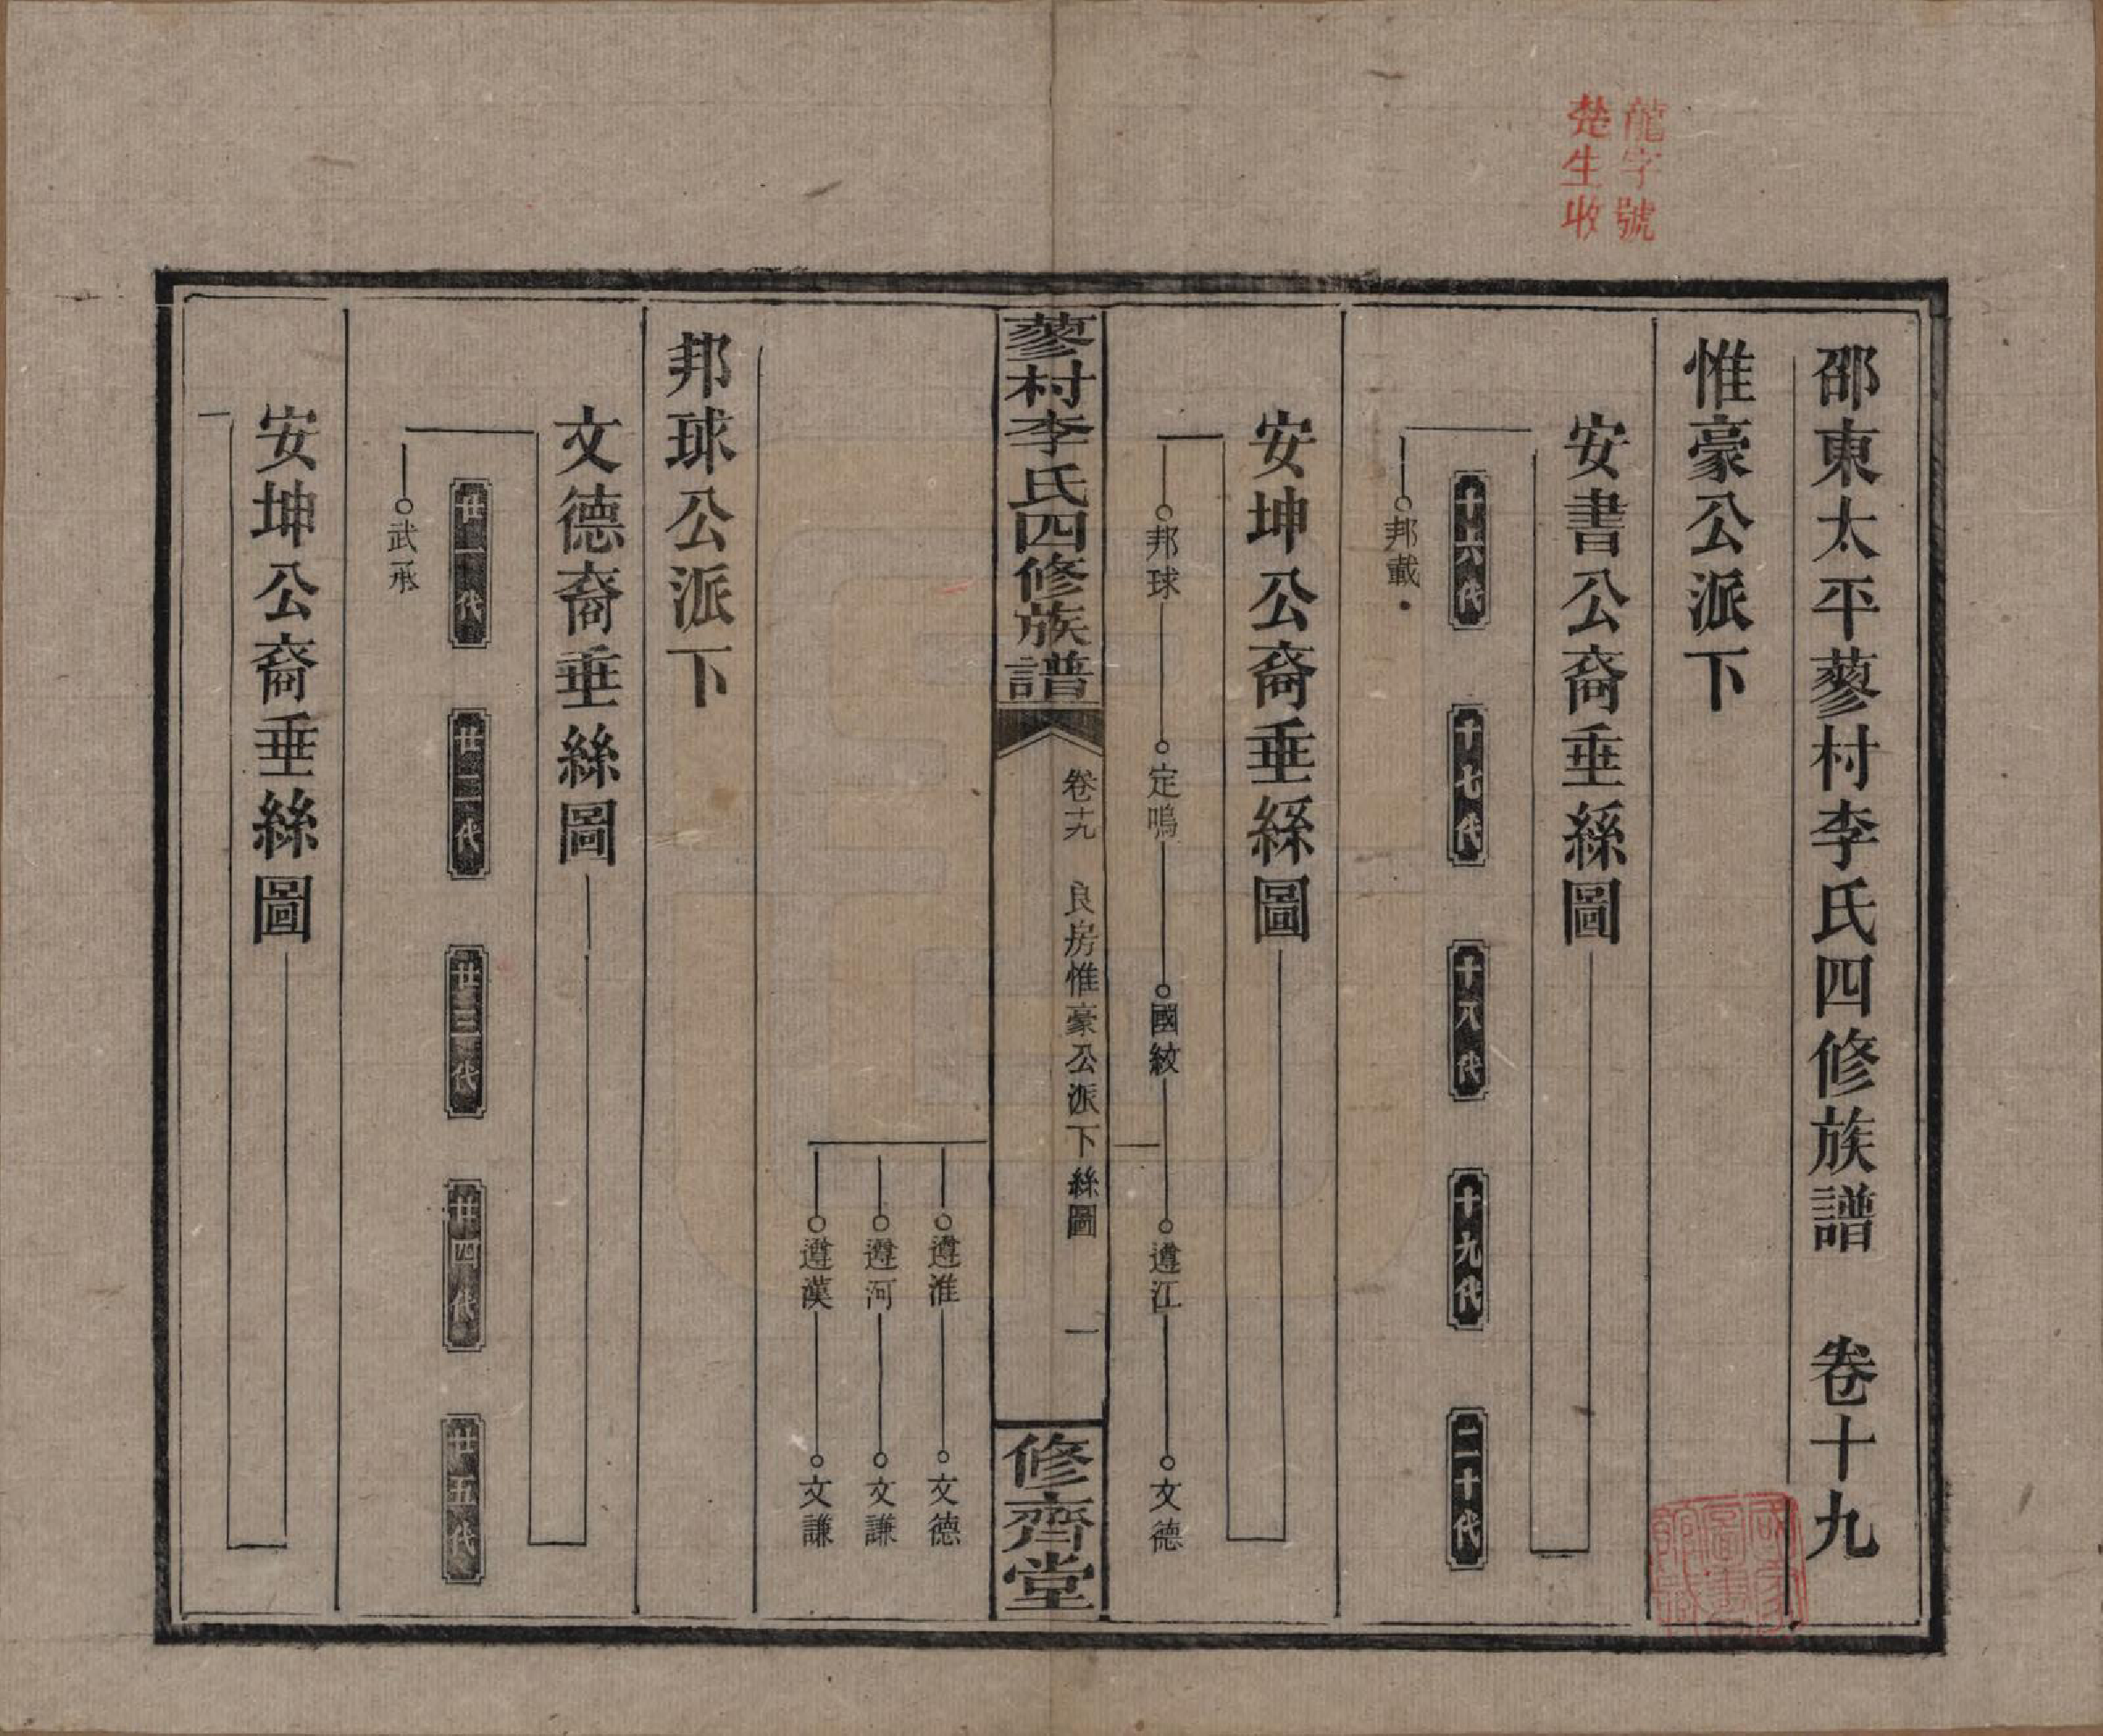 龍字號
楚生收
邵東太平蓼村李氏四修族譜 卷十九
惟豪公派下
安書公裔垂絲圖
十六代 十七代 十八代 十九代 二十代
邦載
安坤公裔垂絲圖
邦球 定鳴 國紋 遵江 文德
蓼村李氏四修族譜 卷十九 良房惟豪公派下絲圖 一 修齊堂
遵淮 文德
遵河 文謙
遵漢 文謙
邦球公派下
文德裔垂絲圖
廿一代 廿二代 廿三代 廿四代 廿五代
武承
安坤公裔垂絲圖